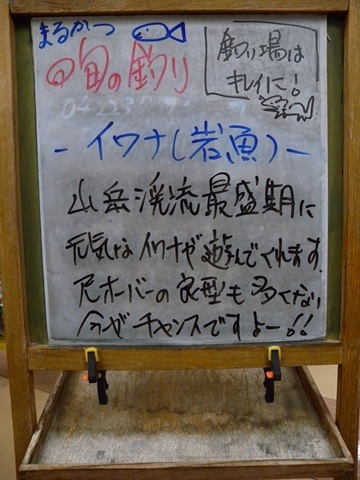 まるかつ
旬の釣り
釣り場は
キレイに!
-イワナ(岩魚)-
山岳渓流最盛期に
元気なイワナが遊んでくれます.
尺オーバーの良型も多くない
今がチャンスですよー!!